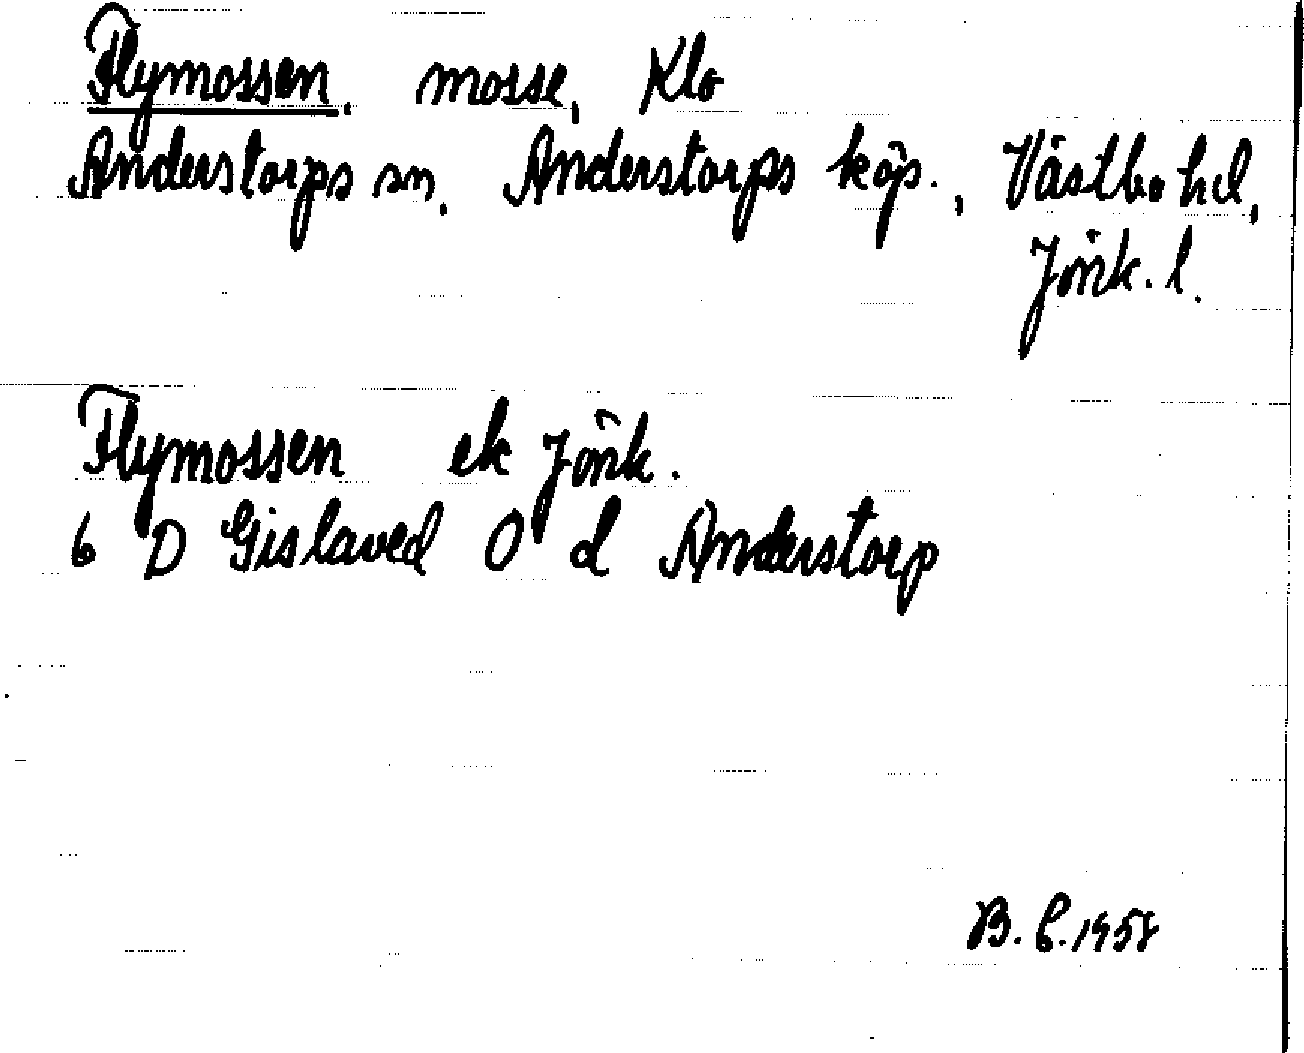 Flymossen, mosse, Klo
Anderstorps sn, Anderstorps köp., Västbo hd,
Jönk. l.
Flymossen ek Jönk.
6 D Gislaved O d Anderstorp
B. C. 1958